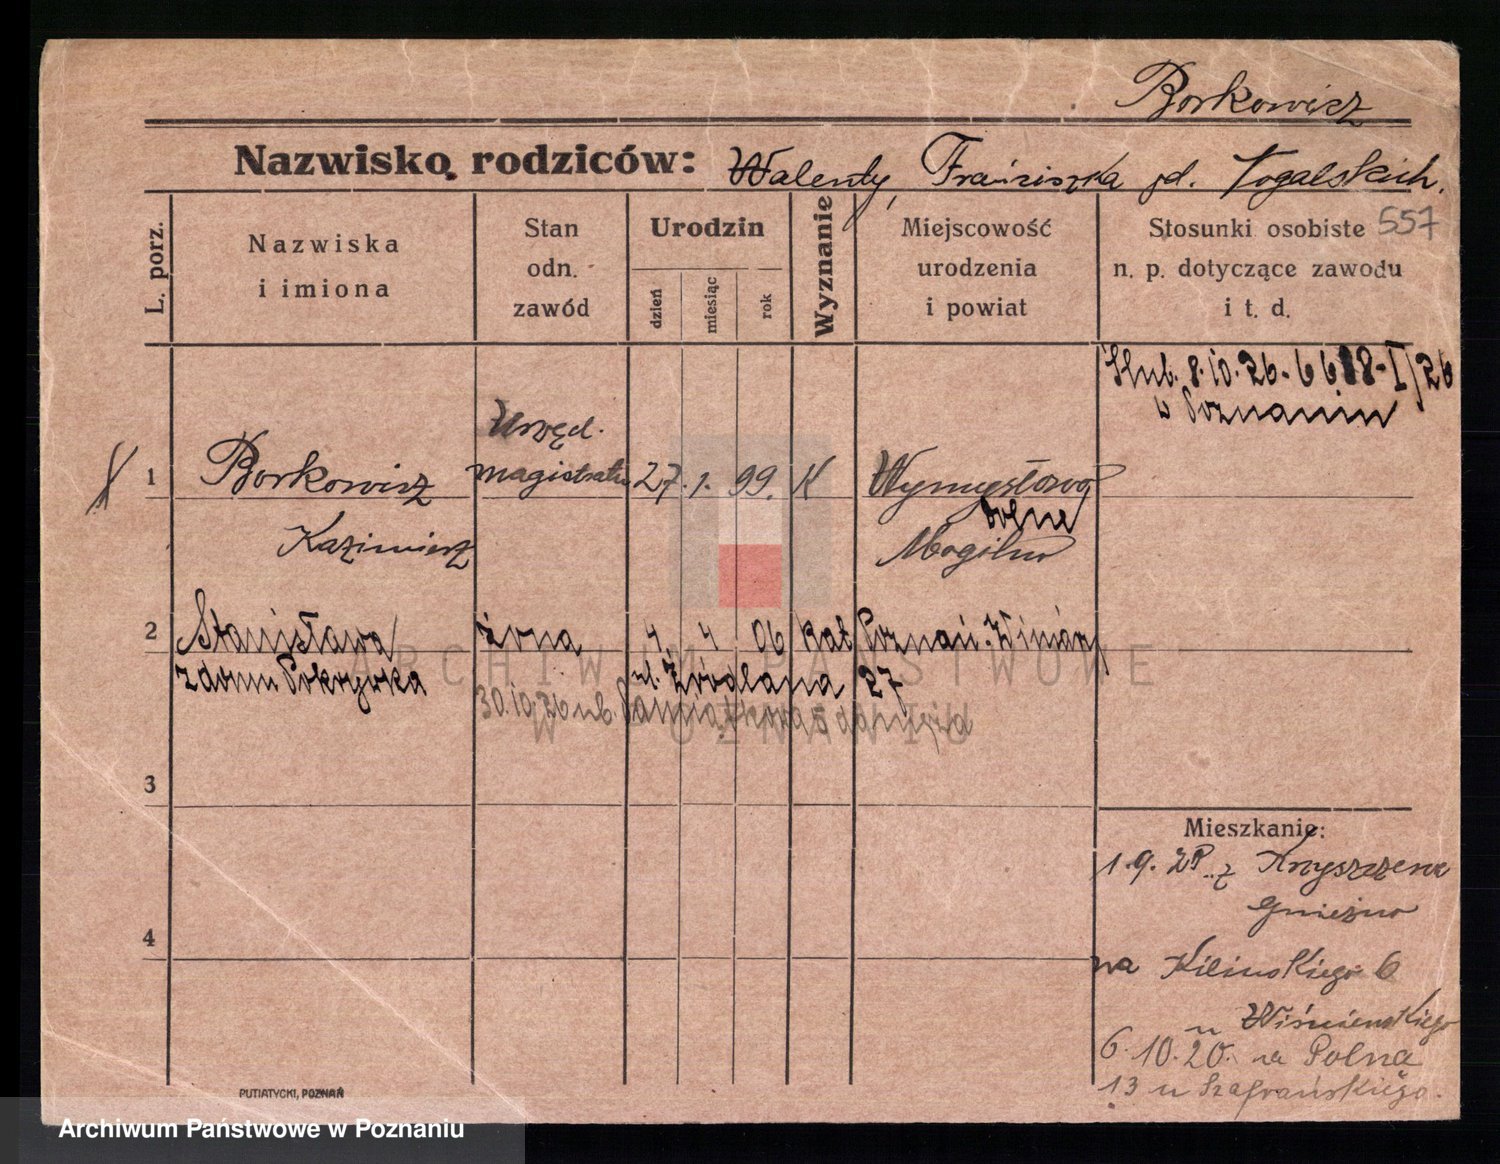 Borkowicz
Nazwisko rodziców: Walenty, Franciszka zd. Rogalskich.
557
L. porz.
Nazwiska
i imiona
Stan
odn.
zawód
Urodzin
dzień
miesiąc
rok
Wyznanie
Miejscowość
urodzenia
i powiat
Stosunki osobiste
n. p. dotyczące zawodu
i t. d.
Ślub. 8.10.26
w Poznaniu
1
Borkowicz
Kazimierz
Urzęd.
magistratu
27. 1. 99. K
Wymysłowo
dolne
Mogilno
2
Stanisława
z domu Pokrywka
żona
4 4 06 kat
Poznań. Winiary
ul. Źródlana 27
30.10.26 ub.
3
4
Mieszkanie:
1.9. z
Gniezno
na Kilińskiego 6
u Wiśniewskiego
6.10.20. na Polna
13 u Szafrańskiego.
PUTIATYCKI, POZNAŃ
ARCHIWUM PAŃSTWOWE
W POZNANIU
Archiwum Państwowe w Poznaniu